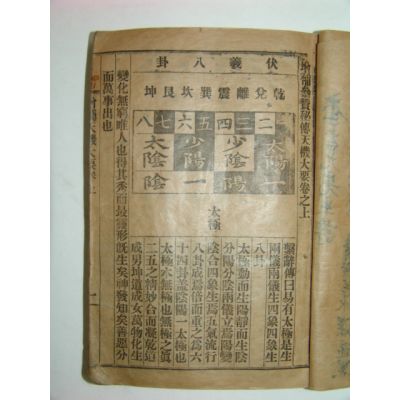 增補參贊秘傳天機大要卷之上
伏羲八卦
乾兌離震巽坎艮坤
一二三四五六七八
太陽少陰少陽太陰
陽陰
太極
繫辭傳曰易有太極是生
兩儀兩儀生四象四象生
八卦
太極動而生陽靜而生陰
分陽分陰兩儀立焉陽變
陰合四象生焉五氣流行
八卦成焉倍而重之爲六
十四卦盖陰陽一太極也
太極亦無極也無極之眞
二五之情妙合而凝乾道
成男坤道成女萬物化生
變化無窮唯人也得其秀而最灵形旣生矣神發知矣善惡分
而萬事出也